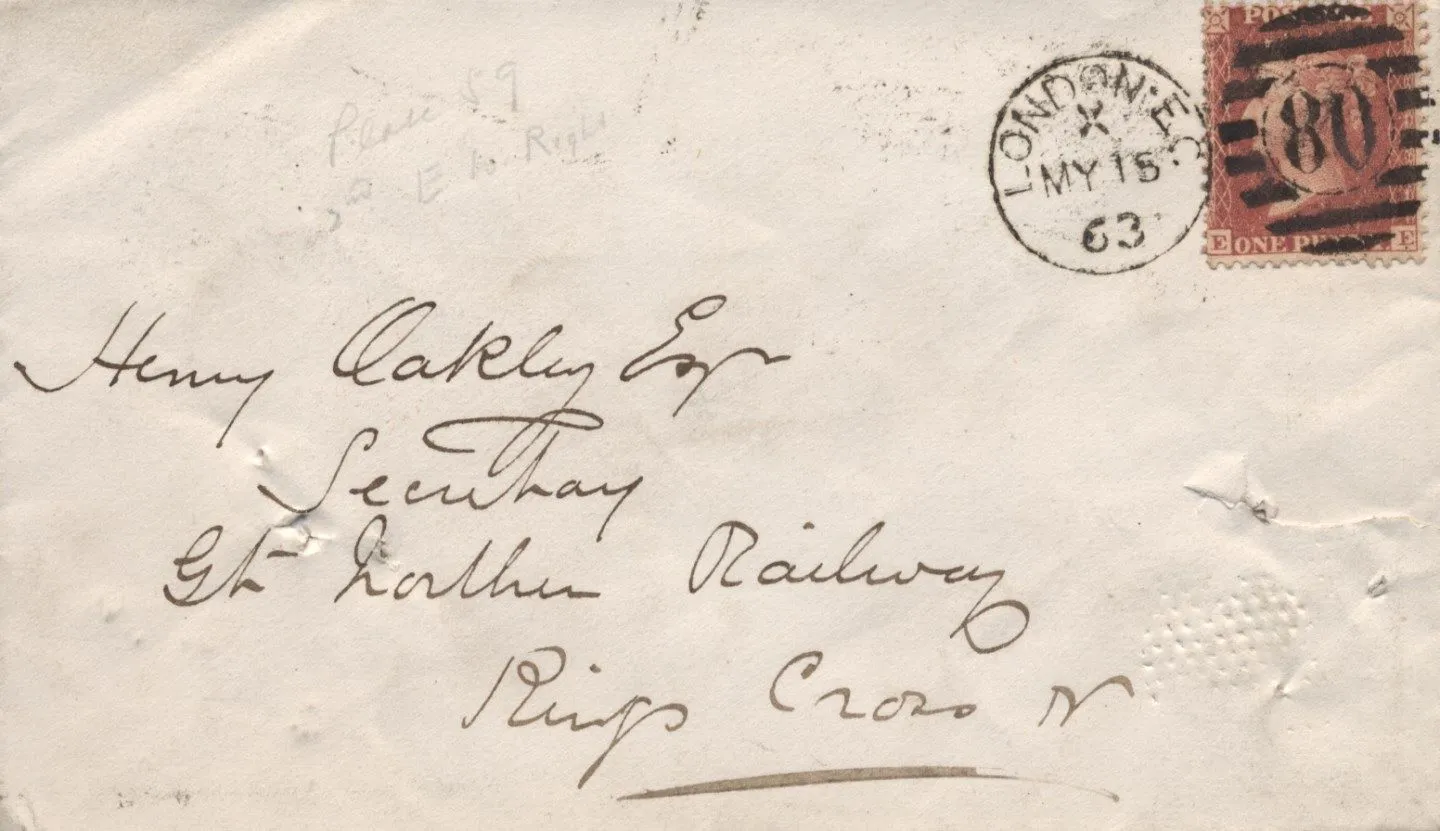 Plate 59
E to Right
LONDON·E.C
X
MY 15
63
80
POSTAGE
E ONE PENNY E
Henry Oakley Esqr
Secretary
Gt Northern Railway
Kings Cross N